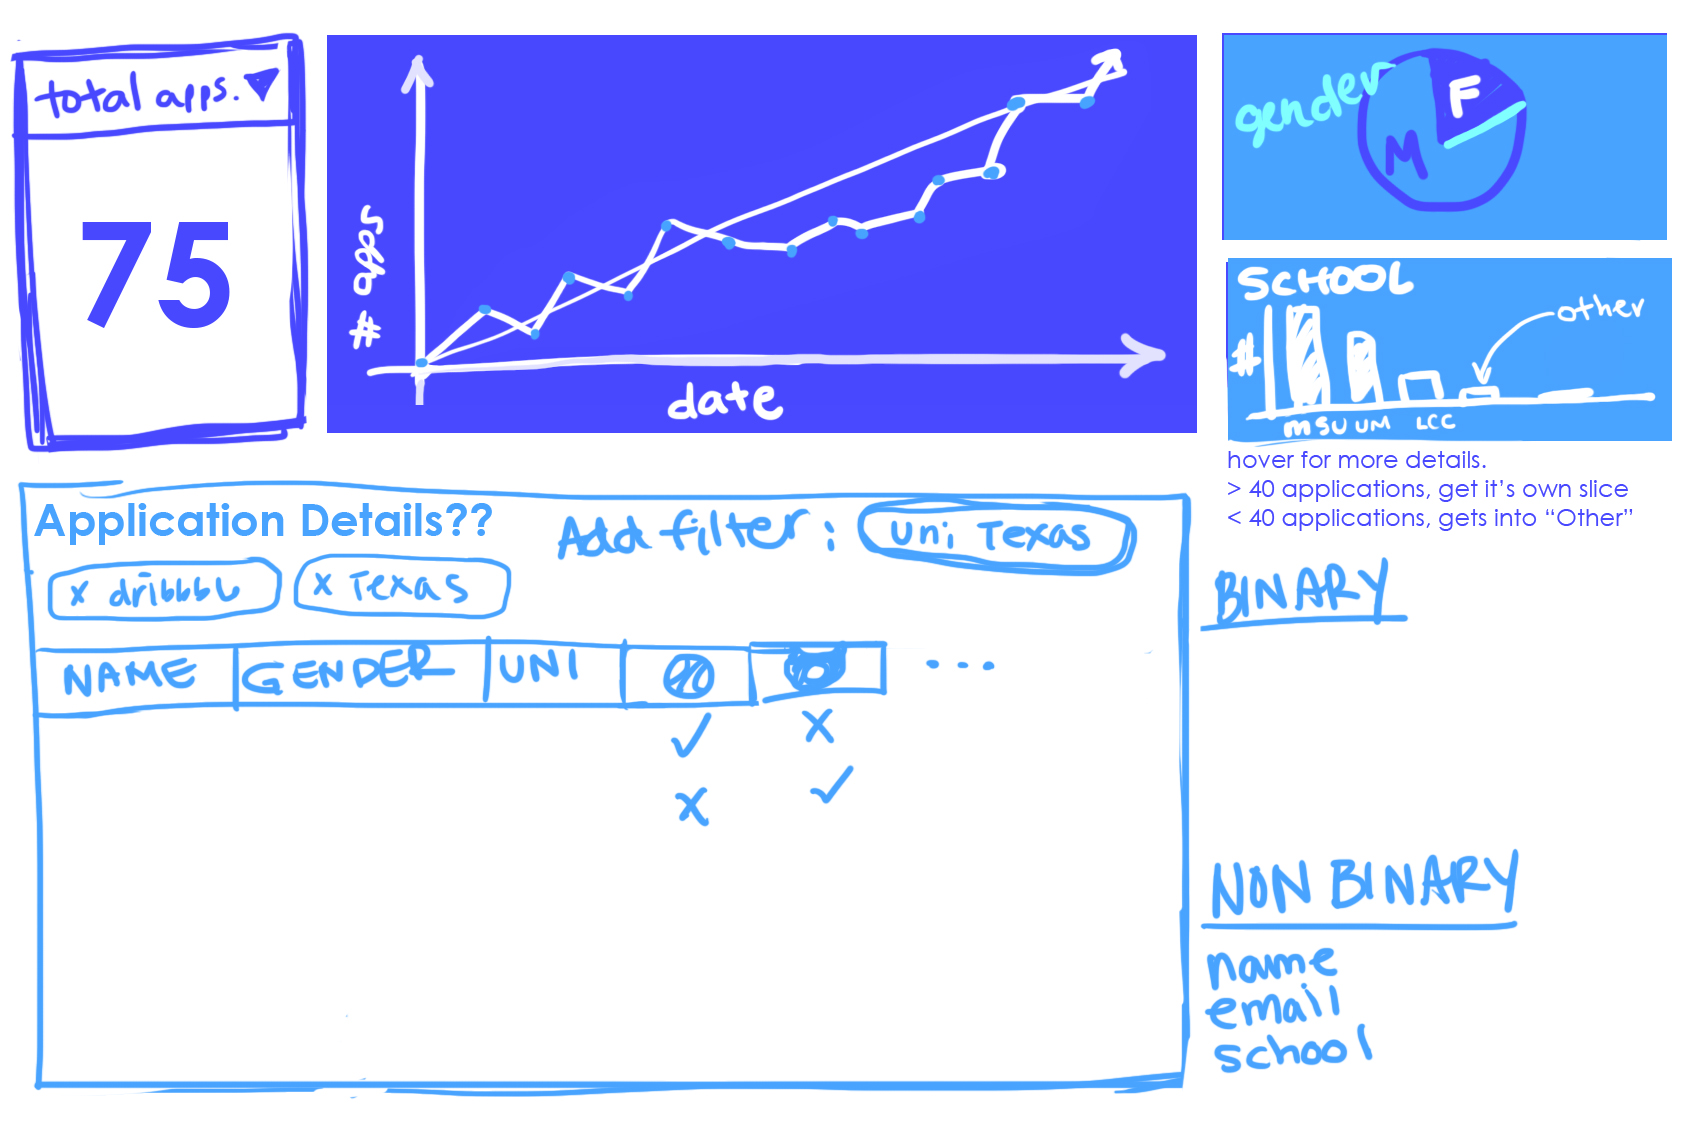 total apps.
75
# apps
date
gender
F
M
SCHOOL
other
#
MSU UM LCC
hover for more details.
> 40 applications, get it’s own slice
< 40 applications, gets into “Other”
Application Details??
Add filter: uni Texas
x dribbble
x Texas
NAME GENDER UNI ...
BINARY
NON BINARY
name
email
school